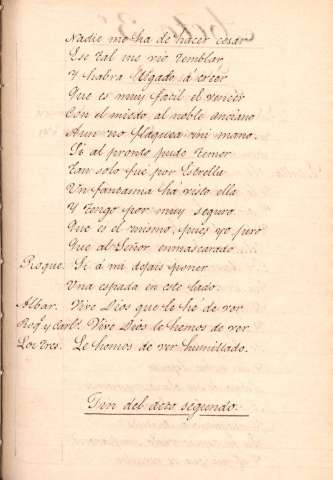 Nadie me ha de hacer cesar
Ese tal me vió temblar
Y habrá llegado á creer
Que es muy facil el vencer
Con el miedo al noble anciano
Aun no flaquea mi mano.
Si al pronto pude temer
Tan solo fue por Estrella
Un fantasma há visto ella
Y tengo por muy seguro
Que es el mismo, pues yo juro
Que al Señor enmascarado
Roque. Si á mi dejais poner
Una espada en este lado.
Albar. Vive Dios que le hé de ver
Roq. y Carl.s Vive Dios le hemos de ver
Los tres. Le hemos de ver humillado.
Fin del acto segundo.